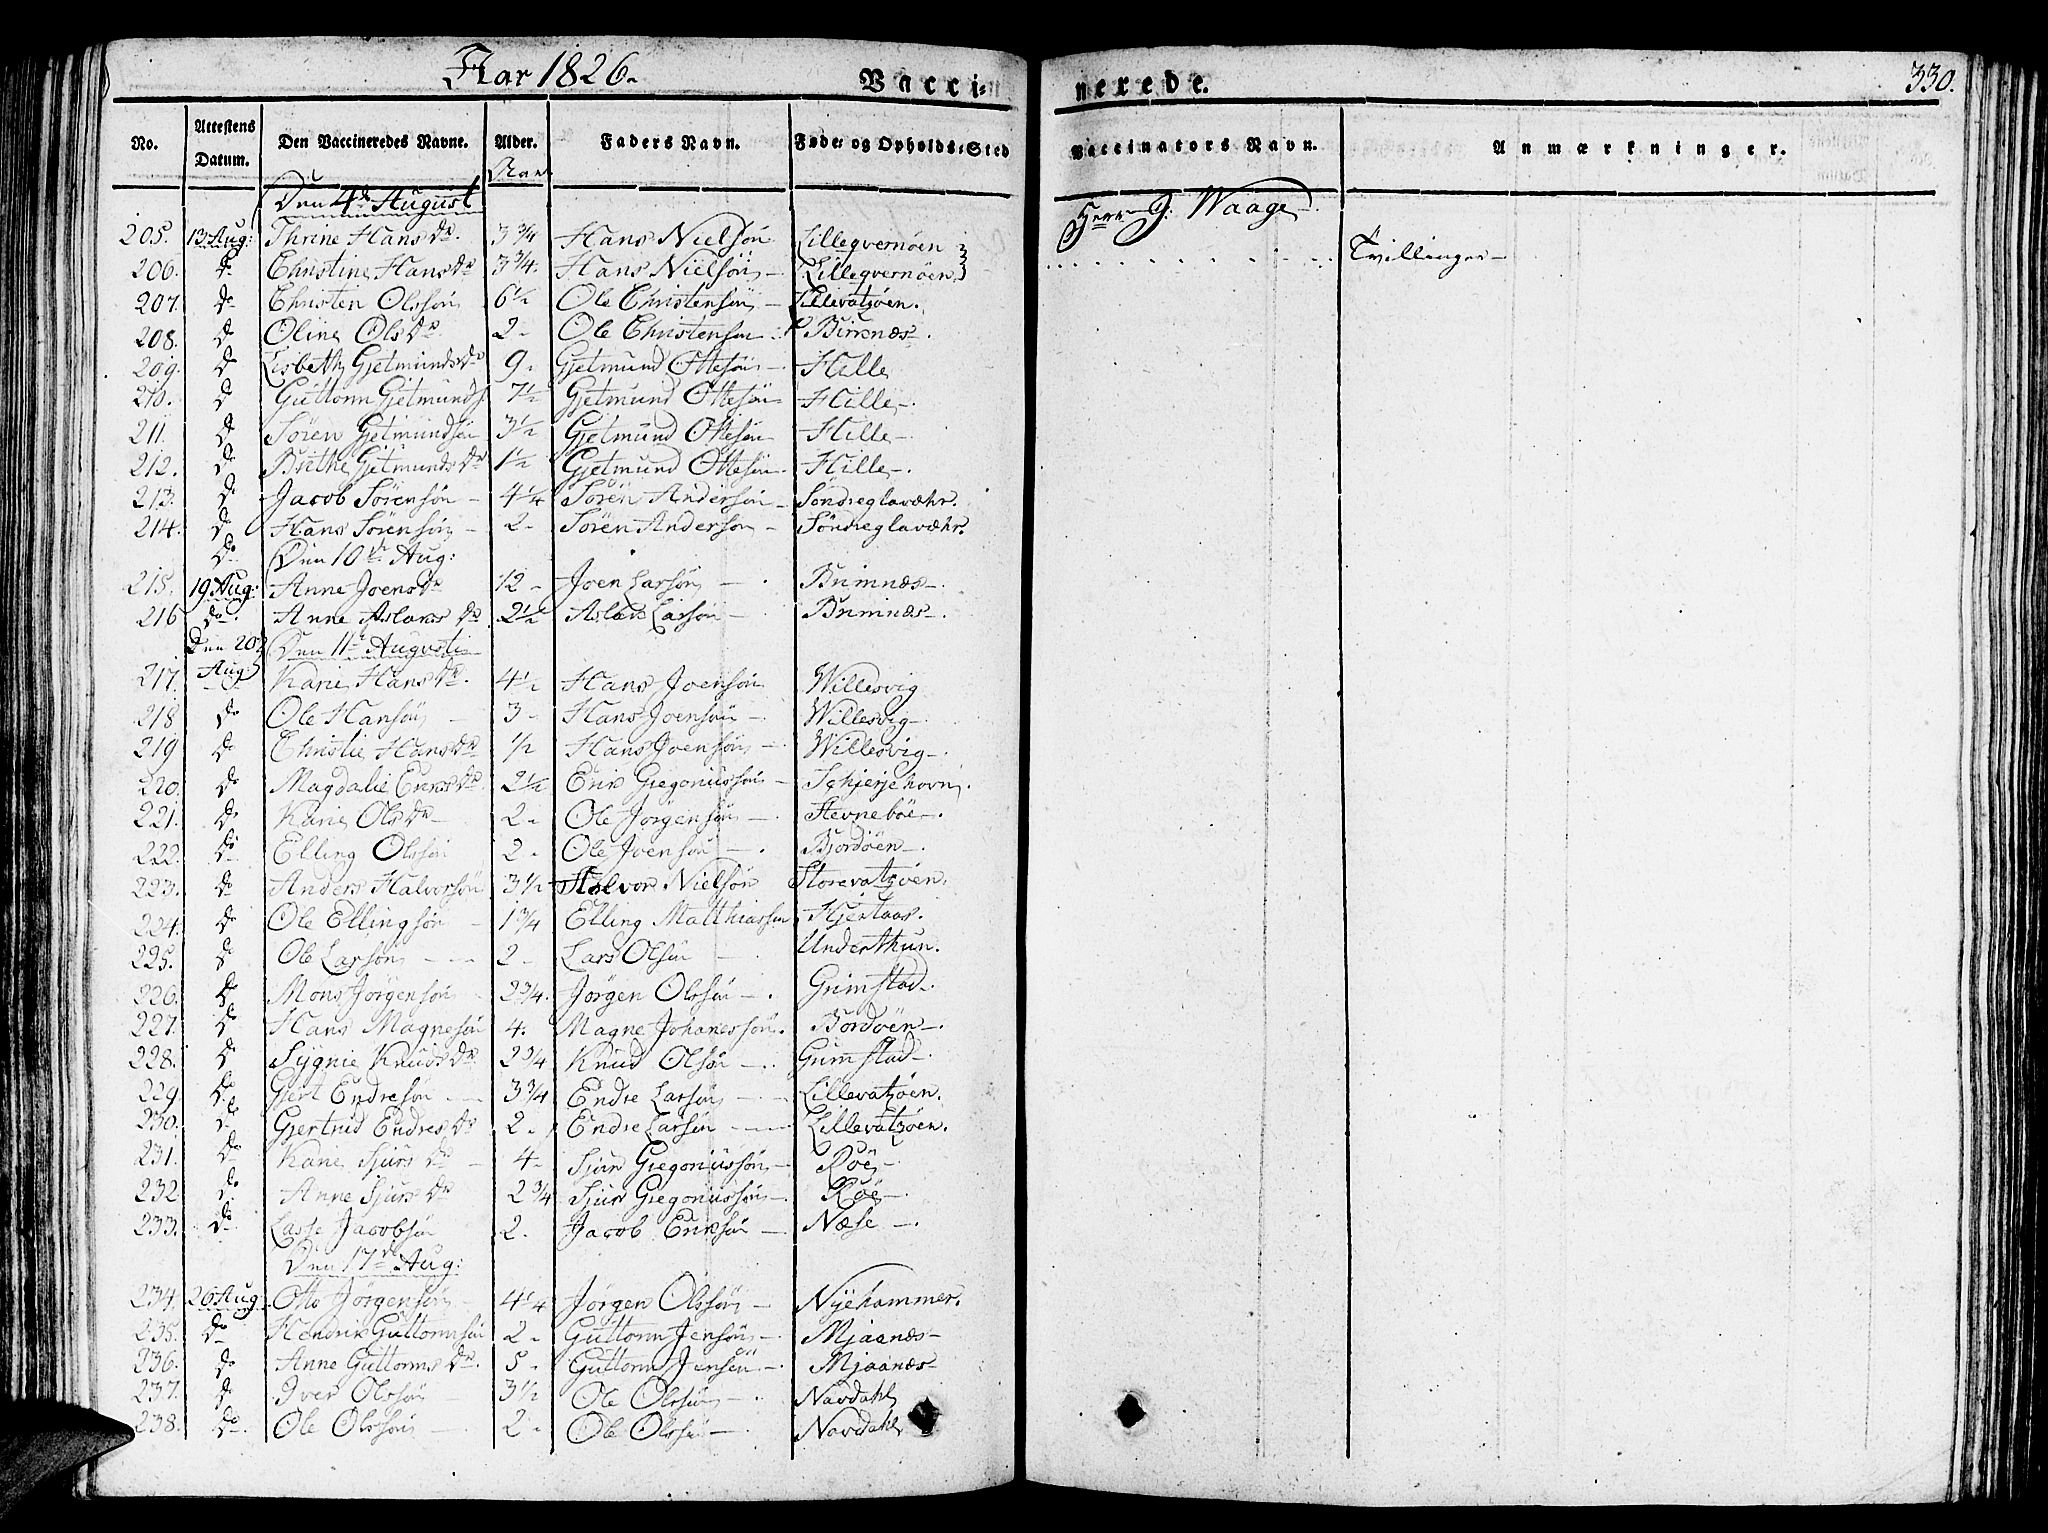 Aar 1826.
Vacci=
nerede.
330.
No. Attestens Datum. Den Vaccineredes Navne. Alder. Faders Navn. Føde= og Opholds=Sted Vaccinators Navn. Anmærkninger.
Aar
Den 4de August
205. 13 Aug: Thrine Hans Dr. 3 3/4 Hans Nielsön Lilleqvernöen Herr J. Waage
206. do Christine Hans Dr 3 3/4. Hans Nielsön - Lilleqvernöen Tvillinger -
207. do Christen Olssön 6 1/2 Ole Christensön - Lillevatzöen.
208. do Oline Ols Dr 2 - Ole Christensen Birrenæs.
209. do Lisbeth Gjetmunds Dr 9 - Gjetmund Ottesön - Hille
210. do Guttorm Gjetmunds. 7 1/2 Gjetmund Ottesön Hille -.
211. do Sören Gjetmundsön 3 1/2 Gjetmund Ottesön Hille -
212. do Brithe Gjetmunds Dr 1 1/2 Gjetmund Ottesön. Hille -.
213. do Jacob Sörensön - 4 1/4 Sören Andersön - Söndreglavæhr.
214. do Hans Sörensön 2 - Sören Andersön - Söndreglavæhr.
do Den 10de Aug:
215. 19 Aug: Anne Joens Dr 12 - Joen Larsön - . Brimnæs -.
216 do. Anne Aslacs Dr 2 1/2 Aslac Larsön - Brimnæs -.
Den 20 Den 11te Augusti
217. Aug Karie Hans Dr. 4 1/2 Hans Joensön Willesvig
218 do Ole Hansön - 3 - Hans Joensön -. Willesvig -.
219 do Christie Hans Dr 1/2 Hans Joensön - Willesvig -.
220. do Magdalie Erics Dr. 2 1/2 Eric Gregoriussön - Schjerjehovn.
221. do Karie Ols Dr - 2 - Ole Jörgensön -. Stevneböe -.
222. do Elling Olssön 2 - Ole Joensön -. Bjordöen -.
223. do Anders Halvorsön 3 1/2 Halvor Nielsön Storevatzöen.
224. do Ole Ellingsön - 1 3/4 Elling Matthiassen Hjertaas.
225. do Ole Larsön - 2 - Lars Olsön - . Underthun.
226. do Mons Jörgensön - 2 3/4. Jörgen Olssön -. Grimstad -.
227. do Hans Magnesön 4. Magne Johanessön. Bordöen -.
228. do Sygnie Knuds Dr. 2 3/4 Knud Olsön -. Grimstad -.
229. do Gjert Endresön - 3 3/4 Endre Larsön - Lillevatzöen.
230. do Gjertrud Endres Dr 2 - Endre Larsön - Lillevatzöen.
231. do Karie Sjurs Dr - 4 - Sjur Gregoriussön - Röe -
232 do Anne Sjurs Dr 2 3/4 Sjur Gregoriussön -. Röe -.
233. do Lasse Jacobsön 2. Jacob Ericsön - Næse -.
Den 17de Aug:
234. 26 Aug Otto Jörgensön - 4 1/4 Jörgen Olssön - Nyehammer.
235. do Hendrik Guttormsön 2 - Guttorm Jensön -. Mjaanæs -
236. do Anne Guttorms Dr. 5 - Guttorm Jensön -. Mjaanæs -
237. do Iver Olssön - 3 1/2 Ole Olssön -. Navdahl
238. do. Ole Olssön -. 2 - Ole Olssön -. Navdahl